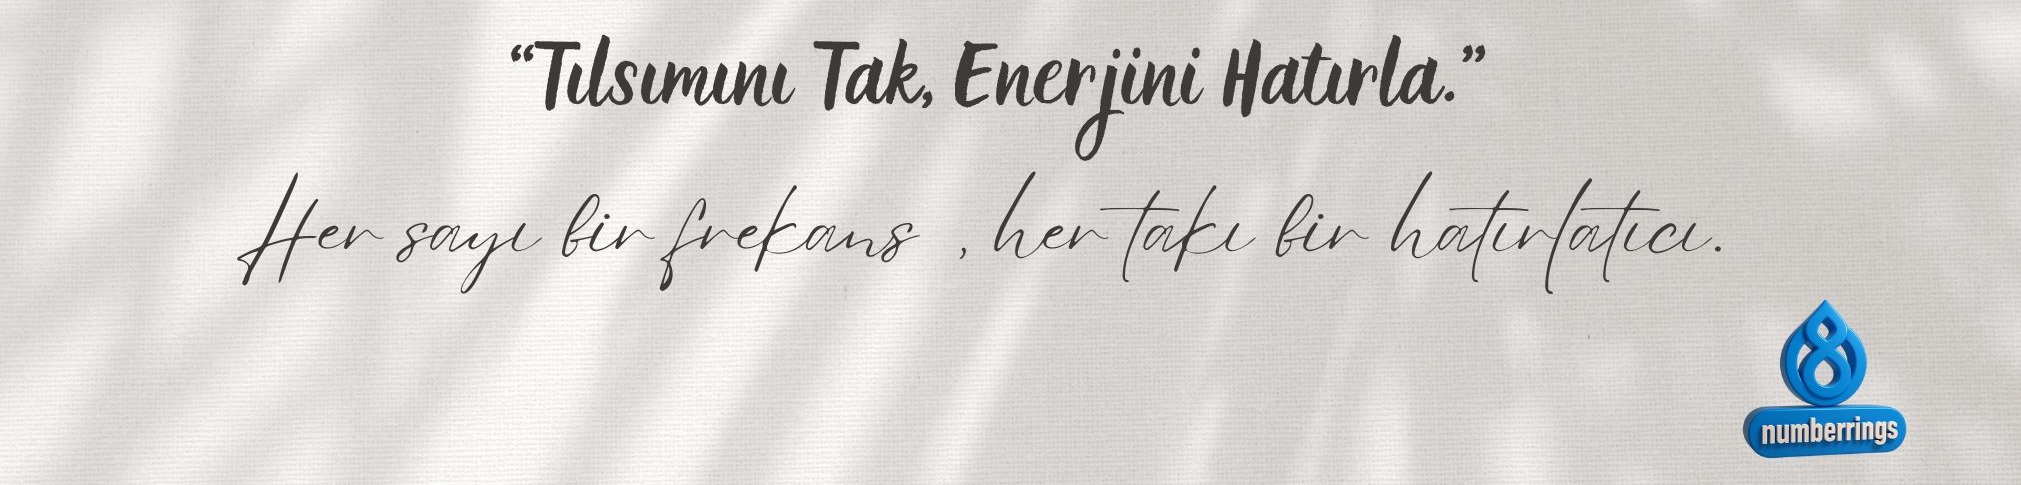 “Tılsımını Tak, Enerjini Hatırla.”
Her sayı bir frekans , her takı bir hatırlatıcı.
8
numberrings